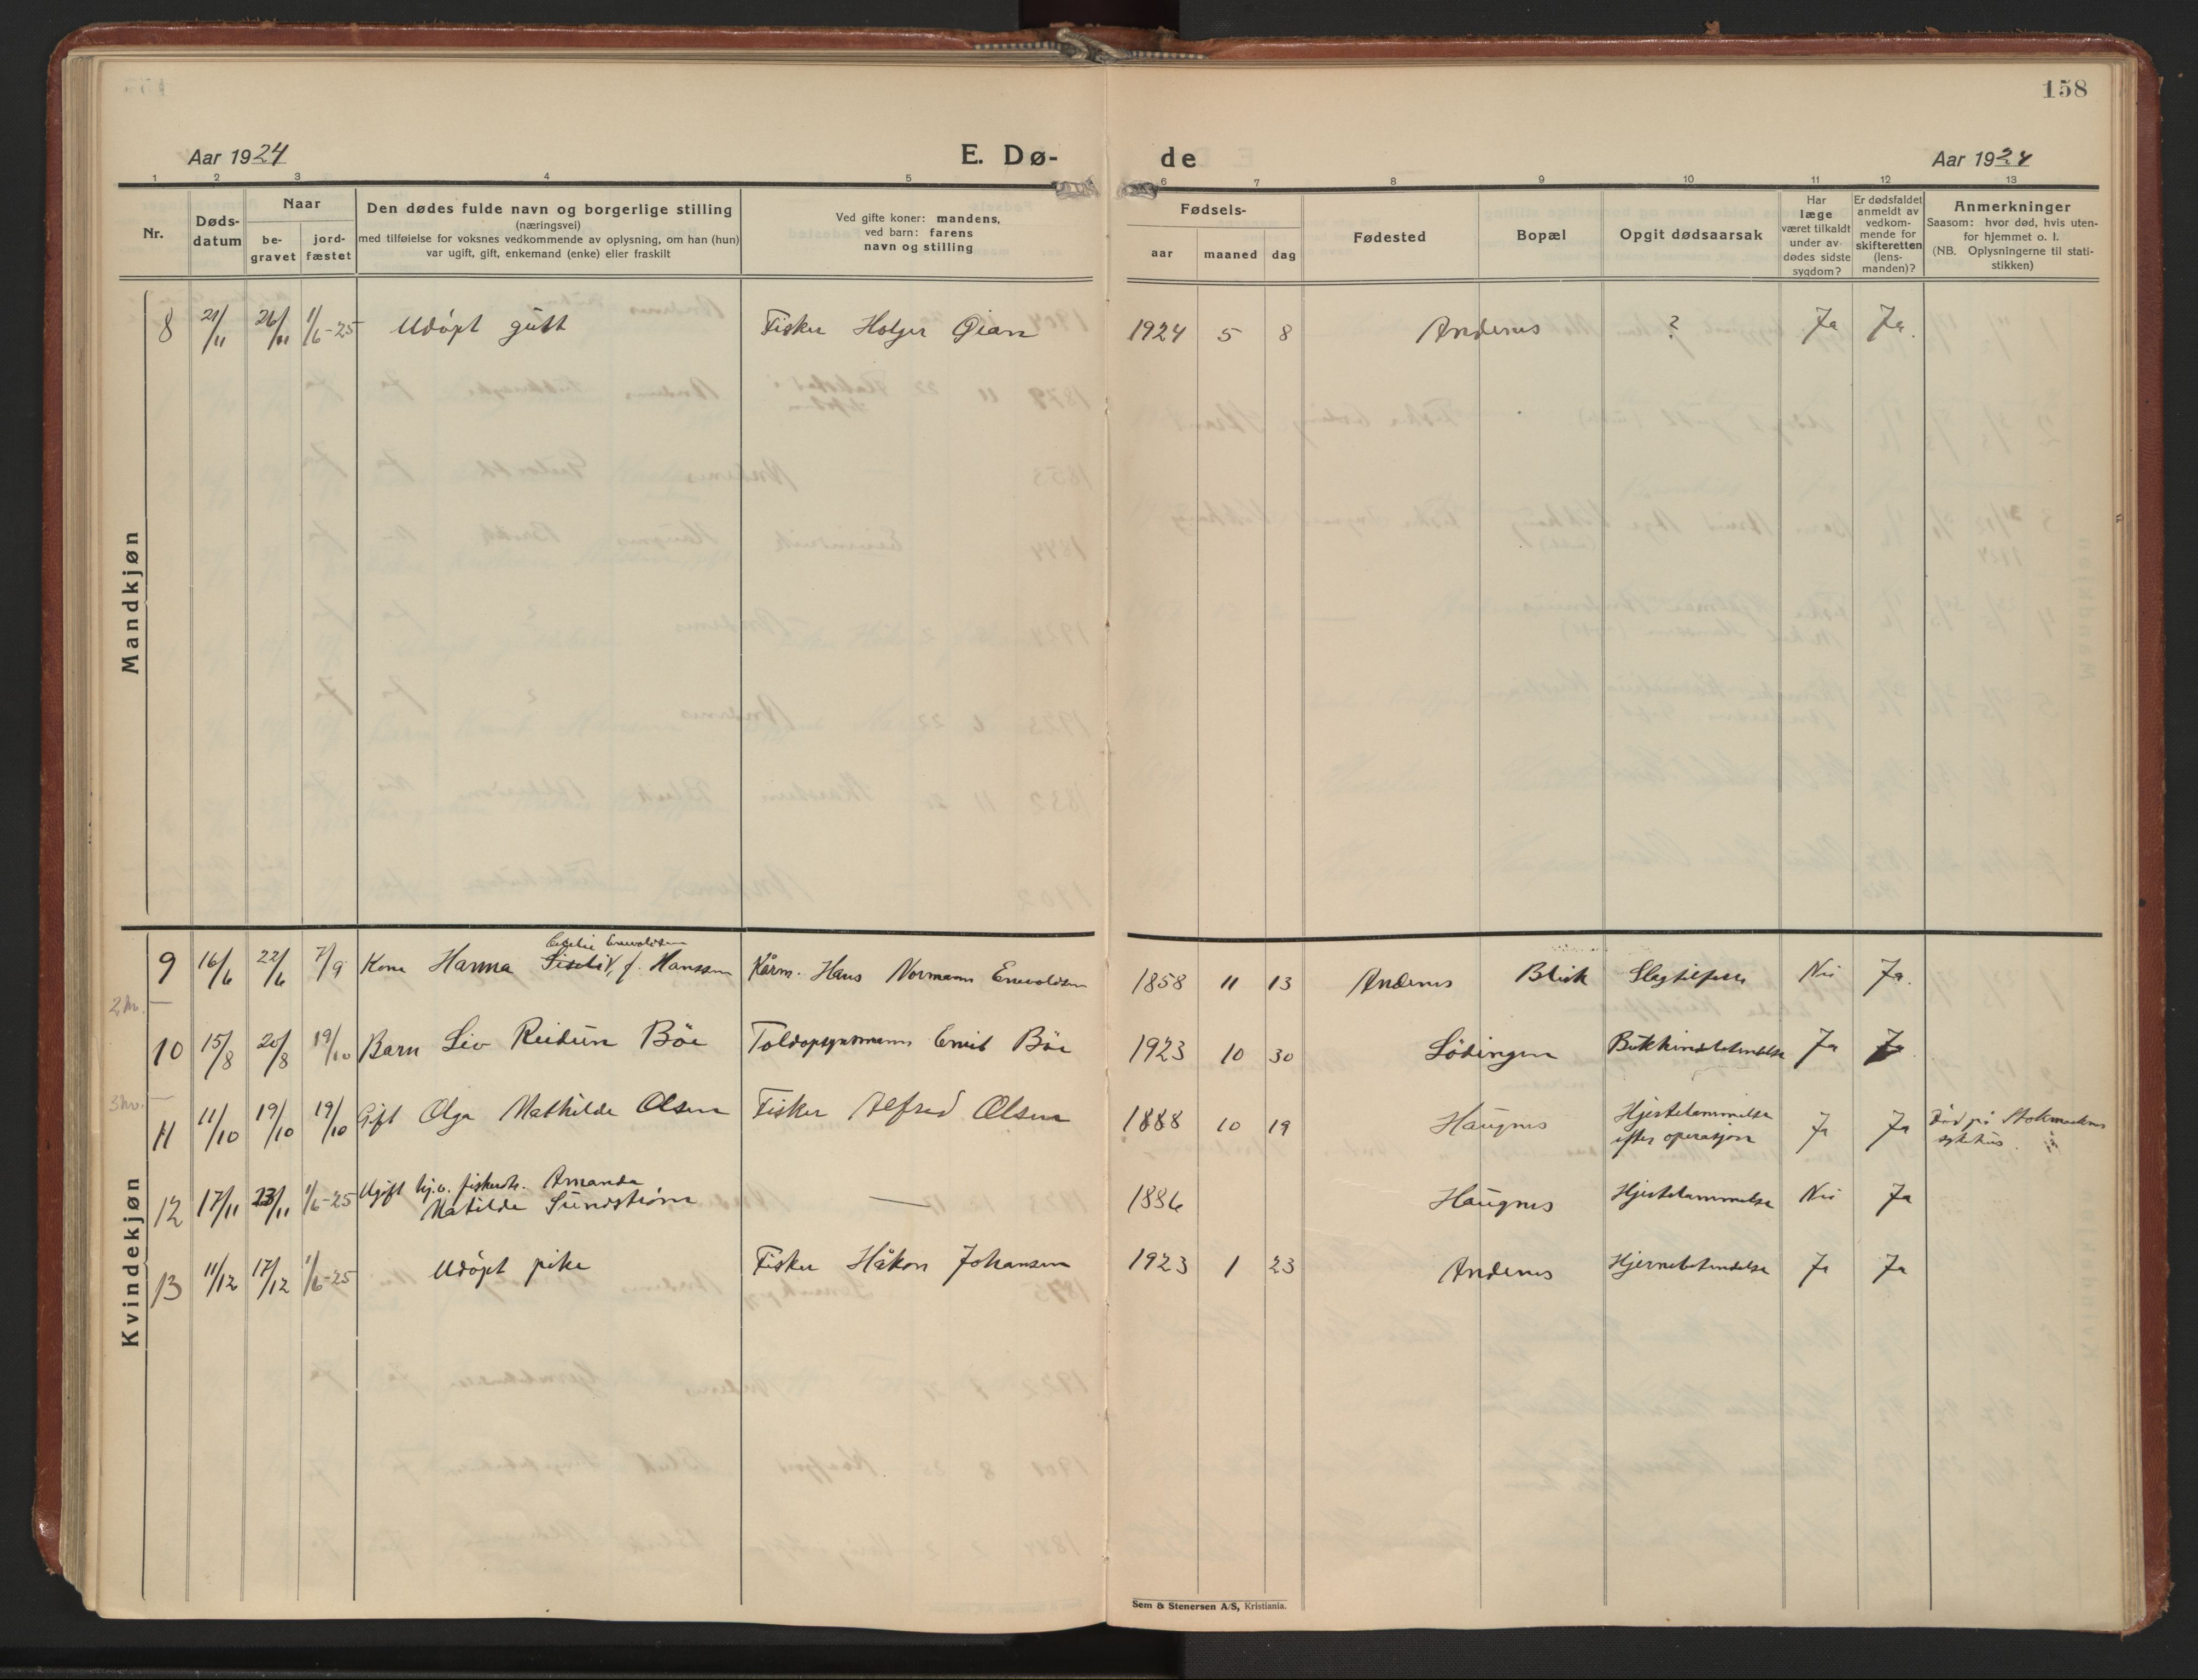 158
Aar 1924
E. Dø-
de
Aar 1924
1 2 3 4 5 6 7 8 9 10 11 12 13
Nr.
Døds-
datum
Naar
be-
gravet
jord-
fæstet
Den dødes fulde navn og borgerlige stilling
(næringsvei)
med tilføielse for voksnes vedkommende av oplysning, om han (hun)
var ugift, gift, enkemand (enke) eller fraskilt
Ved gifte koner: mandens,
ved barn: farens
navn og stilling
Fødsels-
aar
maaned
dag
Fødested
Bopæl
Opgit dødsaarsak
Har
læge
været tilkaldt
under av-
dødes sidste
sygdom?
Er dødsfaldet
anmeldt av
vedkom-
mende for
skifteretten
(lens-
manden)?
Anmerkninger
Saasom: hvor død, hvis uten-
for hjemmet o. l.
(NB. Oplysningerne til stati-
stikken)
Mandkjøn
8 21/11 26/11 1/6-25 Udöpt gutt Fisker Holger 1924 5 8 Andenes ? Ja Ja.
Kvindekjøn
Enevoldsen
9 16/6 22/6 7/9 Kone Hanna f. Hanssen Kårm. Hans Normann Enevoldsen 1858 11 13 Andenes Bleik Slagtilfelle Nei Ja.
2 kv.
10 15/8 20/8 19/10 Barn Liv Reidun Böe Toldopsynsmann Emil Böe 1923 10 30 Lödingen Bukhindebetendelse Ja Ja
3 kv.
11 11/10 19/10 19/10 Gift Olga Mathilde Olsen Fisker Alfred Olsen 1888 10 19 Haugnes Hjertelammelse
efter operasjon Ja Ja Död på Stokmarknes
sykehus
12 17/11 23/11 1/6-25 Ugift hj.v. fiskerdt. Amanda
Matilde Sundström — 1886 Haugnes Hjertelammelse Nei Ja
13 11/12 17/12 1/6-25 Udöpt pike Fisker Håkon Johansen 1923 1 23 Andenes Hjernebetendelse Ja Ja
Sem & Stenersen A/S, Kristiania.